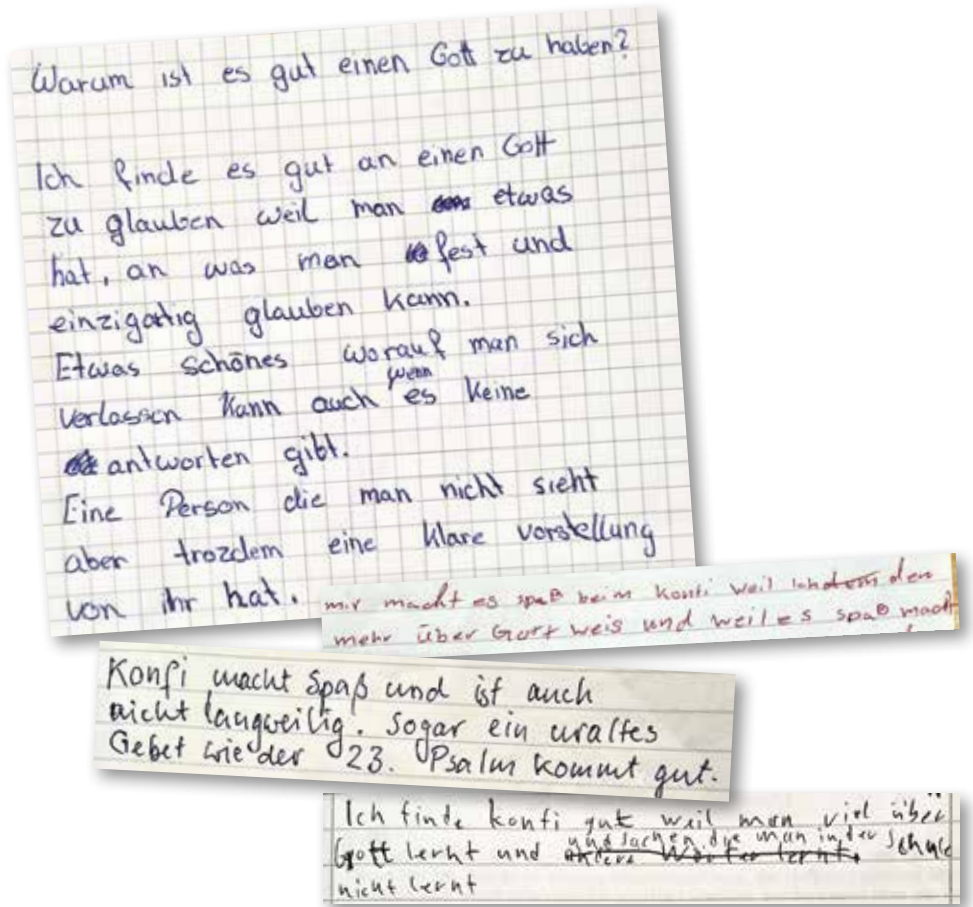 Warum ist es gut einen Gott zu haben?
Ich finde es gut an einen Gott
zu glauben weil man etwas
hat, an was man fest und
einzigartig glauben kann.
Etwas schönes worauf man sich
verlassen kann auch wenn es keine
antworten gibt.
Eine Person die man nicht sieht
aber trozdem eine klare vorstellung
von ihr hat.
mir macht es spaß beim konfi weil den
mehr über Gott weis und weil es spaß macht
Konfi macht Spaß und ist auch
nicht langweilig. Sogar ein uraltes
Gebet wie der 23. Psalm kommt gut.
Ich finde konfi gut weil man viel über
Gott lernt und und sachen die man in der Schule
nicht lernt